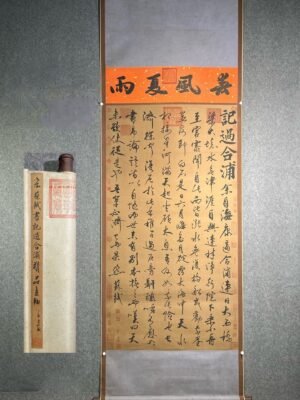 春風夏雨
記過合浦 余自海康適合浦連日大雨橋
梁大壞水無津涯自興廉村淨行院下乘小舟
至官寨聞自此西皆漲水無復橋船或勸乘蜑
並海即白石是日六月晦無月碇宿大海中天水
相接星河滿天起坐四顧太息吾何數乘此險也已
濟徐聞復厄於此乎稚子過在旁鼾睡呼不應所撰
書易論語皆以自隨而世未有別本撫之而嘆曰天
未欲使從是也吾輩必濟已而果然 蘇軾
宋蘇軾書記過合浦精品